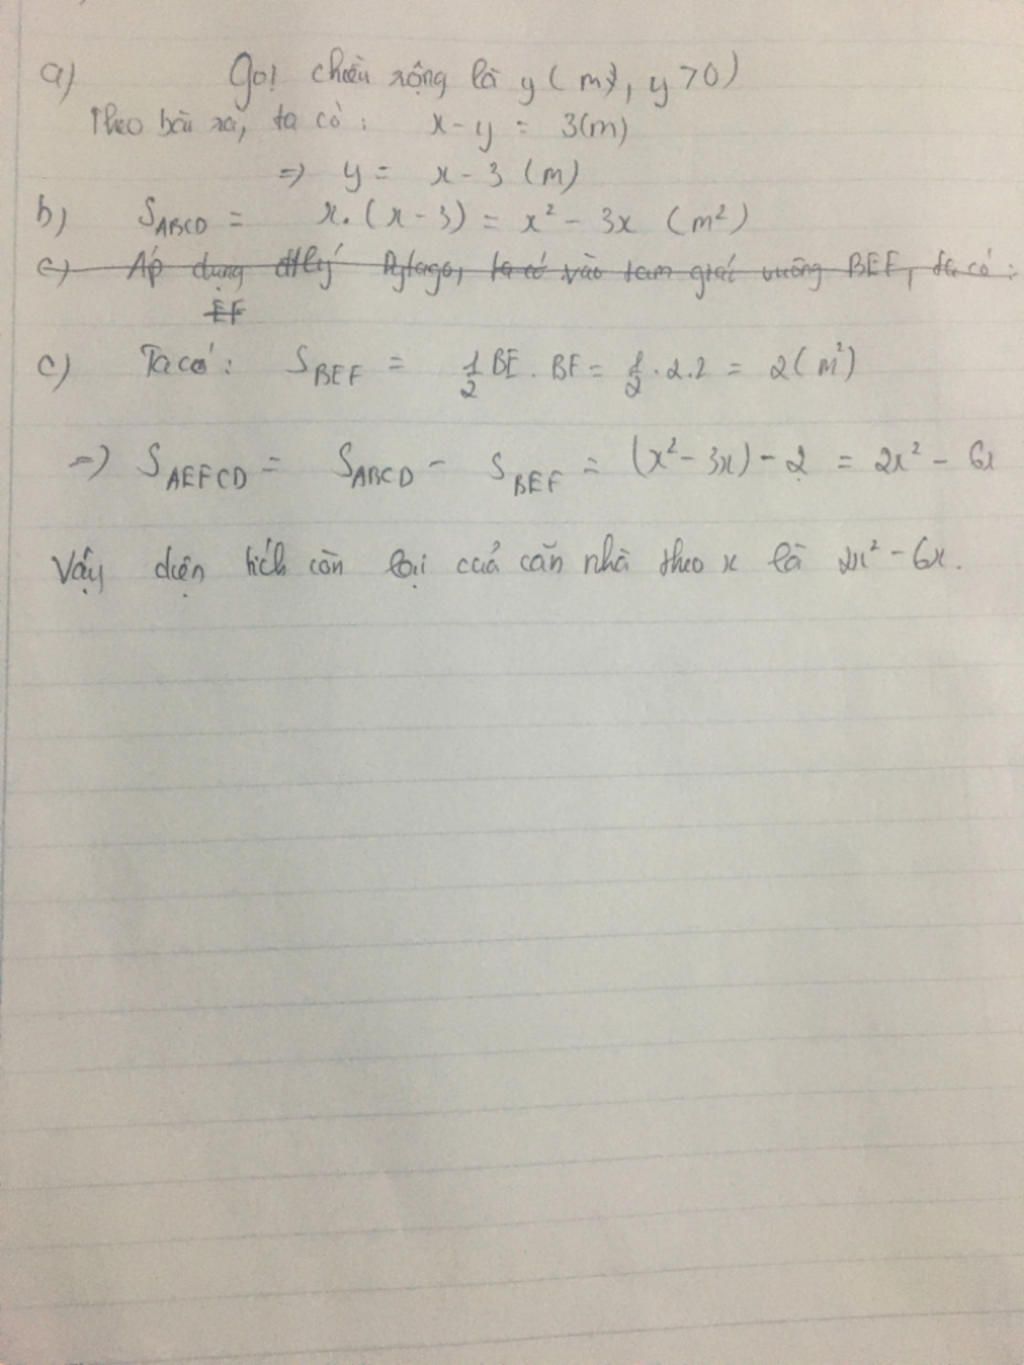 a) Gọi chiều rộng là y (m), y > 0)
Theo bài ra, ta có: x - y = 3(m)
=> y = x - 3 (m)
b) S_ABCD = x.(x - 3) = x² - 3x (m²)
c) Áp dụng đlý Pytago, ta có vào tam giác vuông BEF, ta có:
EF
c) Ta có: S_BEF = 1/2 BE . BF = 1/2 . 2.2 = 2(m²)
=> S_AEFCD = S_ABCD - S_BEF = (x² - 3x) - 2 = 2x² - 6x
Vậy diện tích còn lại cuả căn nhà theo x là 2x² - 6x.